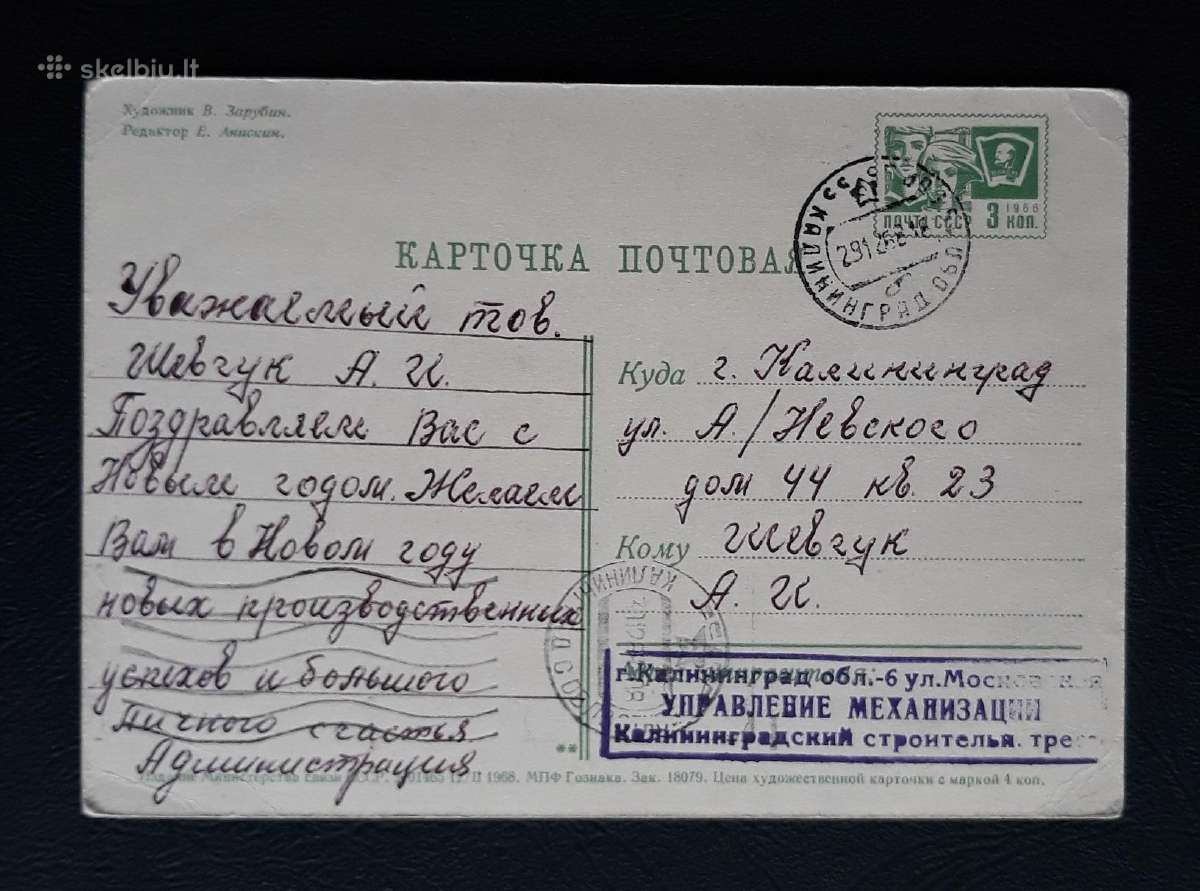 skelbiu.lt
Художник В. Зарубин.
Редактор Е. Анискин.
ПОЧТА СССР 3 КОП.
1966
КАЛИНИНГРАД ОБЛ
291268
КАРТОЧКА ПОЧТОВАЯ
Уважаемый тов.
Шевчук А. И.
Поздравляем Вас с
Новым годом. Желаем
Вам в Новом году
новых производственных
успехов и большого
личного счастья
Администрация
Куда г. Калининград
ул. А/Невского
дом 44 кв. 23
Кому Шевчук
А. И.
г.Калининград обл.-6 ул.Московская
УПРАВЛЕНИЕ МЕХАНИЗАЦИИ
Калининградский строительн. трест
**
Издание Министерства связи СССР. II 1968. МПФ Гознака. Зак. 18079. Цена художественной карточки с маркой 4 коп.